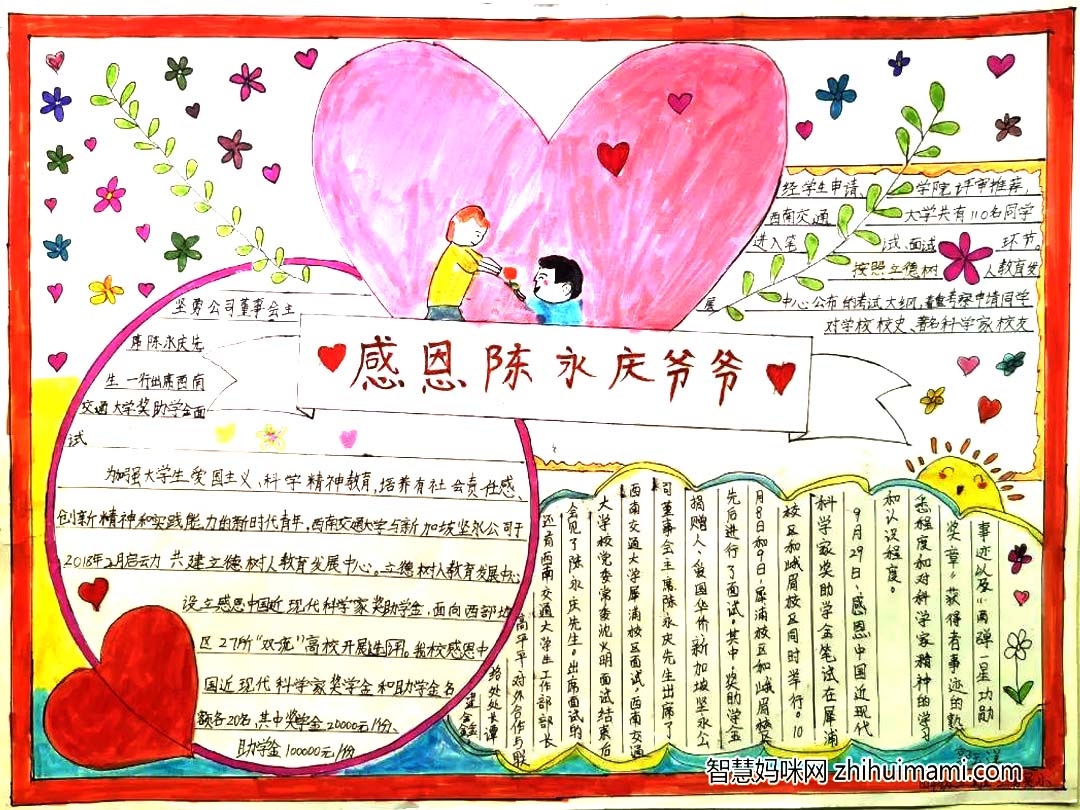 感恩陈永庆爷爷
坚勇公司董事会主
席陈永庆先
生一行出席西南
交通大学奖助学金面
试
为加强大学生爱国主义、科学精神教育,培养有社会责任感、
创新精神和实践能力的新时代青年,西南交通大学与新加坡坚永公司于
2018年2月启动共建立德树人教育发展中心。立德树人教育发展中心
设立感恩中国近现代科学家奖助学金,面向西部地
区27所“双流”高校开展选评。我校感恩中
国近现代科学家奖学金和助学金名
额各20名,其中奖学金20000元/份、
助学金100000元/份
经学生申请、学院评审推荐,
西南交通大学共有110名同学
进入笔试、面试环节。
按照立德树人教育发
展中心公布的考试大纲,考察申请同学
对学校校史、著名科学家校友
事迹以及“两弹一星功勋
奖章”获得者事迹的熟
悉程度和对科学家精神的学习
和认识程度。
9月29日,感恩中国近现代
科学家奖助学金笔试在犀浦
校区和峨眉校区同时举行。10
月8日和9日,犀浦校区和峨眉校区
先后进行了面试。其中,奖助学金
捐赠人、爱国华侨新加坡坚永公
司董事会主席陈永庆先生出席了
西南交通大学犀浦校区面试,西南交通
大学校党委常委沈火明面试结束后
会见了陈永庆先生。出席面试的
还有西南交通大学生工作部部长
高平平、对外合作与联
络处处长谭
智慧妈咪网 zhihuimami.com